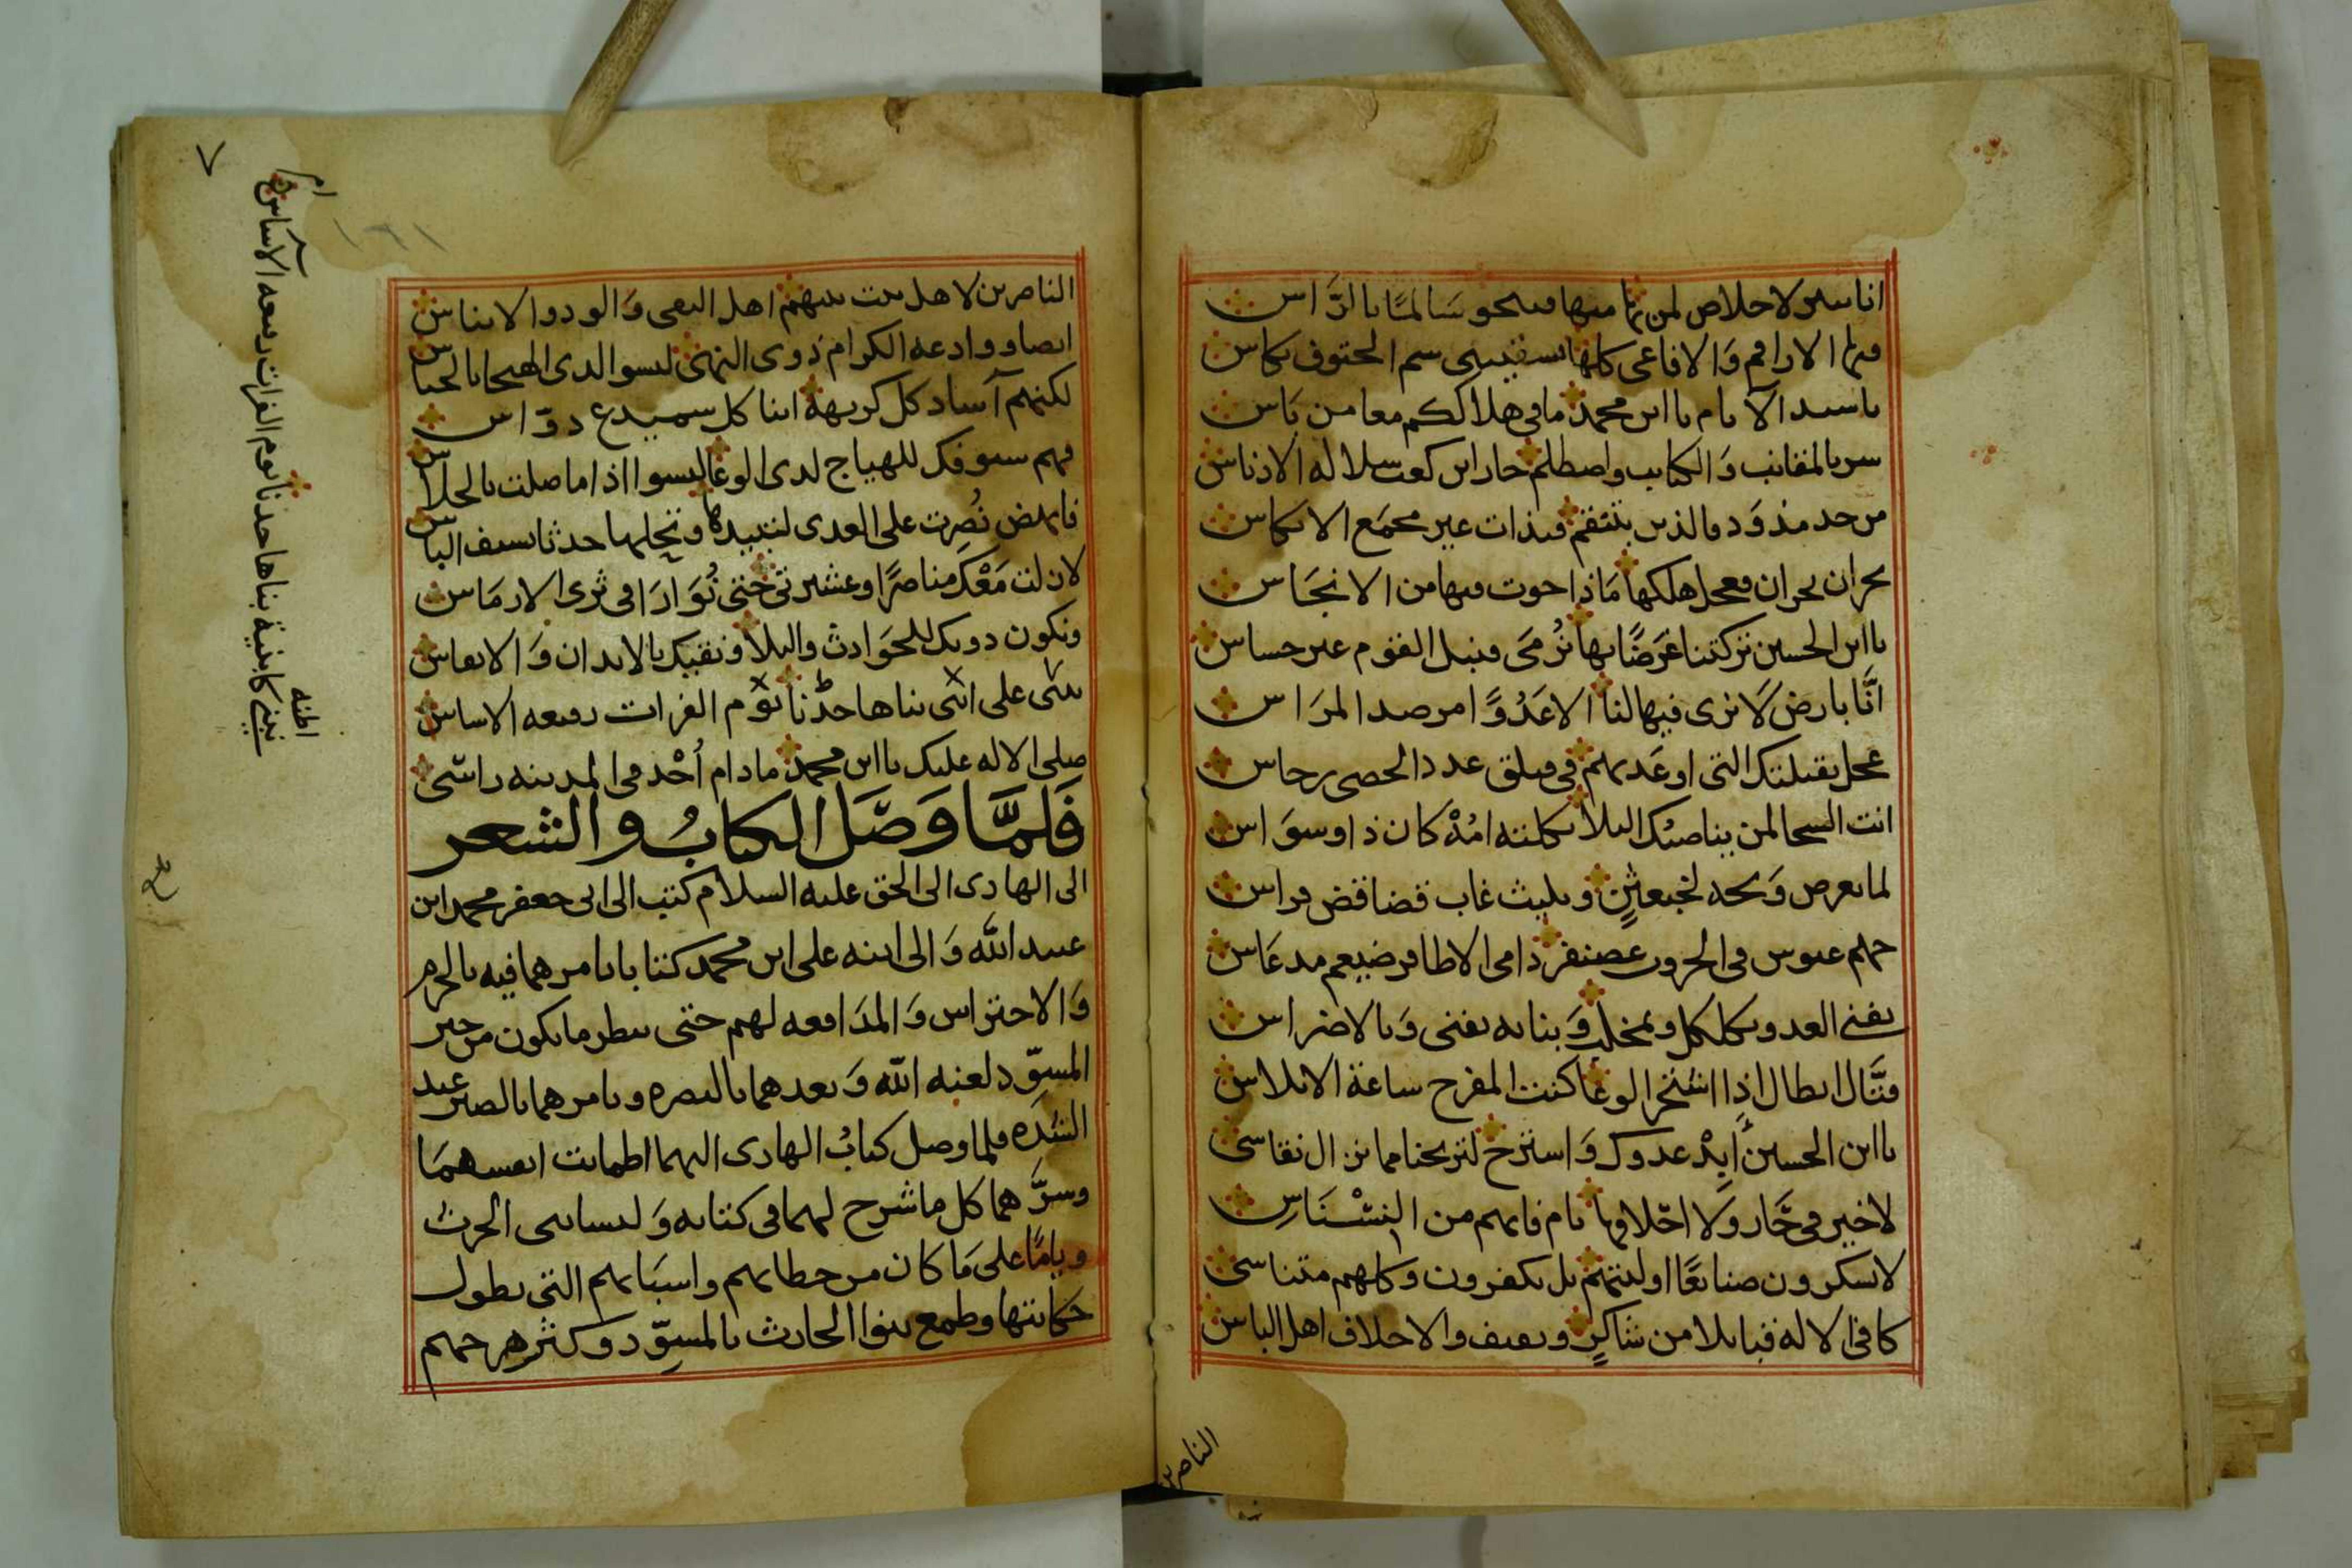 انا سىر ولا خلاص لمن بها منها فىنحو سَالمًا بالرَّاس
فىها الاراقم وَالافاعى كلها تسقىنى سم الحتوف بكاس
يا سيد الآنام يا ابن محمد ما فى هلاككم معا من بَاس
سر بالمقانب وَالكتايب واصطلم حار ابن كعب سلالة الادناس
من حد مذوَد والذىن بتنقم فىذات عىر مجمَع الانكاس
نجران نجران فعجل هلكها مَاذا حوت فيها من الانجَاس
يا ابن الحسين تركتنا غرَضًا بها نُرمَى فنبل القوم عىر حساس
انَّا بارض لَا نرى فيها لنا الا عَدُوًّا مرصد المرَاس
عجل بقتلتك التى اوعَدتهم فى فىلق عدد الحصى رجاس
انت السجا لمن يناصبك البلا ثكلته امُهْ كان ذا وسوَاس
لما تعرض وَىحه لخبعثنٍ وبليث غاب قضاقض فراس
جهم عبوس فى الحروب غضنفر دامى الاظافر ضيغم مدعَاس
يفنى العدو بكلكل وبمخلب وَبنابه يفنى وَبالاضراس
قتَّال ابطال اذِا اشتجر الوغا كنت المفرح ساعة الابلاس
يا ابن الحسين أَبِدْ عدوك وَاسترح لتريحنا مما نزال نقاسى
لا خير فى حَّار ولا احَلافها نام فانهم من النسْنَاسِ
لا ىشكرون صنايعًا اوليتهم بل يكفرون وكلهم متناسى
كافى الاله قبايلا من شاكرٍ وثقيف والاحلاف اهل الباس
الناصرين
الناصرين لاهل بيت نبيهم اهل التقى وَالود والايناس
ايضا ووادعه الكرام ذوى النهى ليسوا لدى الهيجا بالجناس
لكنهم آساد كل كريهة ابنا كل سميدع دوّاس
فهم سيوفك للهياج لدى الوغا ليسوا اذا ما صلت بالحلاس
فانهض نُصِرت على العدى لتبيدها وتحلها حدثا بسيف الباس
لا زلت مَعْكَ مناصرًا وعشيرتى حتى نُوَارَا فى ثرى الارمَاس
ونكون دونك للحَوادث والبلا ونقيك بالابدان وَالانفاس
نبنى على ابنى بناها جدّنا يوم الفرات رفيعه الاساس
صلى الاله عليك يا ابن محمد ما دام أُحْد فى المدينه راسّى
فَلَمَّا وَصَّلَ الكتابُ والشعر
الى الهادى الى الحق عليه السلام كتب الى ابى جعفر محمد ابن
عبيد الله وَالى ابنه على ابن محمد كتابا يامرهما فيه بالحزم
وَالاحتراس وَالمدَافعه لهم حتى ىنطر ما يكون من خبر
المسوّد لعنه الله وَيعدهما بالنصره ويامرهما بالصبر عند
الشدَه فلما وصل كتابُ الهادى اليهما اطمانت انفسهمَا
وسرَّهما كل ما شرح لهما فى كتابه وَلبسا بنى الحرث
ويامًا على مَا كان من خطابهم واسبَابهم التى يطول
حكايتها وطمع بنوا الحارث بالمسوّد وكثر هرجهم
٧
١٢١
ام
نبنى كابنية بناها جدنا يوم الفرات رفيعه الآساس
اظنه